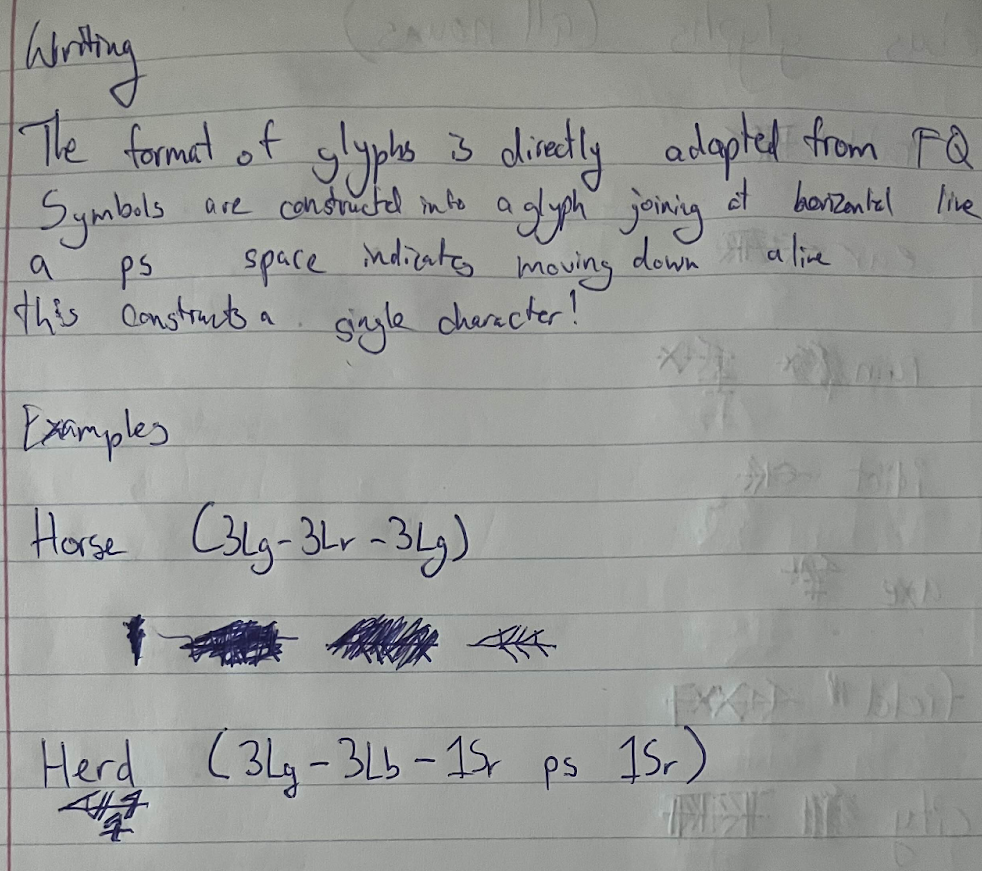 Writing
The format of glyphs is directly adapted from FQ
Symbols are constructed into a glyph joining at horizontal line
a ps space indicates moving down a line
this constructs a single character!
Examples
Horse (3Lg-3Lr-3Lg)
Herd (3Lg-3Lb-1Sr ps 1Sr)